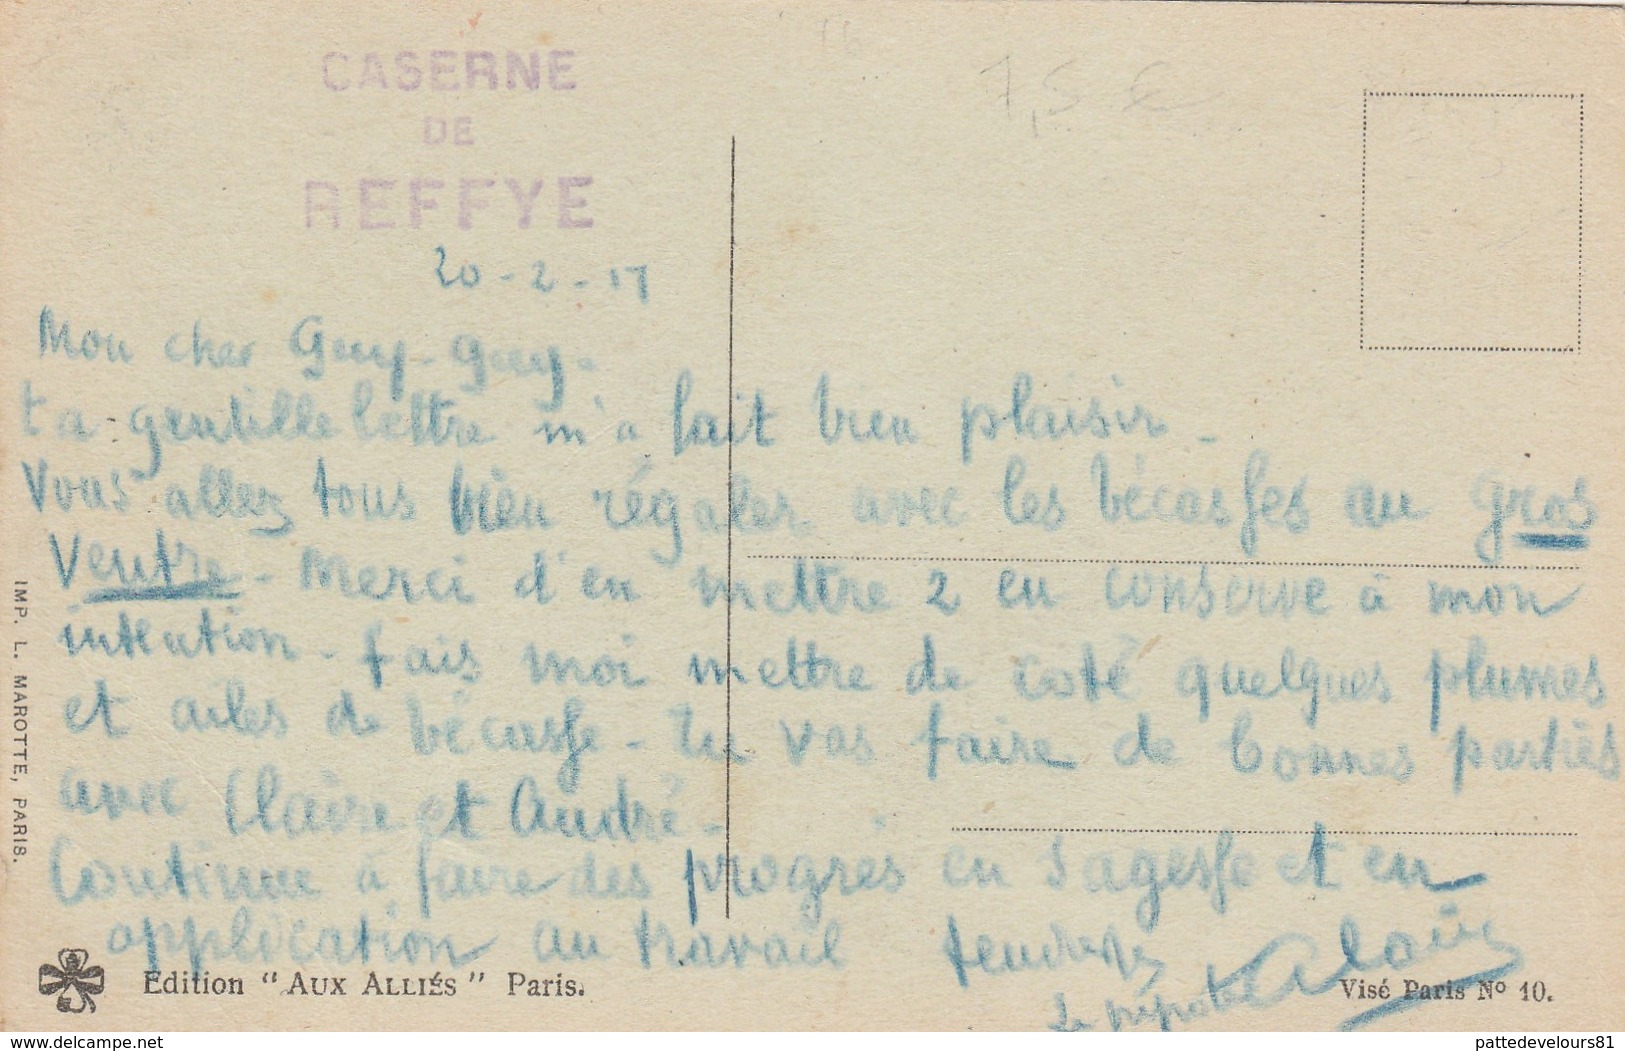 CASERNE
DE
REFFYE
7,5 €
20-2-17
Mon cher Guy-Guy-
ta gentille lettre m'a fait bien plaisir-
Vous allez tous bien régaler avec les bécasses au gros
Ventre- Merci d'en mettre 2 en conserve à mon
intention- fais moi mettre de coté quelques plumes
et ailes de bécasse- Tu vas faire de bonnes parties
avec Claire et André-
Continue à faire des progrès en sagesse et en
application au travail tendresses
Le Alain
IMP. L. MAROTTE, PARIS.
Edition "AUX ALLIÉS" Paris.
Visé Paris No 10.
www.delcampe.net
pattedevelours81